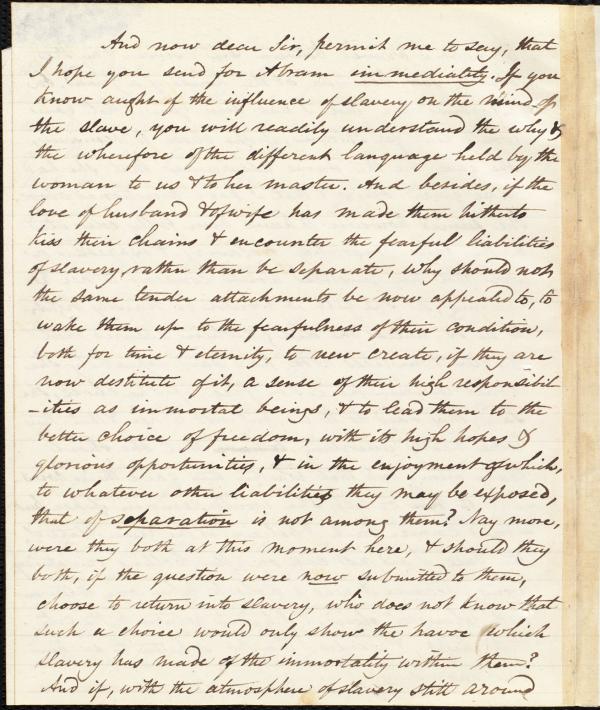 And now dear Sir, permit me to say, that
I hope you send for Abram immediality. If you
know aught of the influence of slavery on the mind of
the slave, you will readily understand the why &
the wherefore of the different language held by the
woman to us & to her master. And besides, if the
love of husband & of wife has made them hitherto
kiss their chains & encounter the fearful liabilities
of slavery, rather than be separate, why should not
the same tender attachments be now appealed to, to
wake them up to the fearfulness of their condition,
both for time & eternity, to new create, if they are
now destitute of it, a sense of their high responsibil
-ities as immortal beings, & to lead them to the
better choice of freedom, with its high hopes &
glorious opportunities, & in the enjoyment of which,
to whatever other liabilities they may be exposed,
that of separation is not among them? Nay more,
were they both at this moment here, & should they
both, if the question were now submitted to them,
choose to return into slavery, who does not know that
such a choice would only show the havoc which
slavery has made of the immortality within them?
And if, with the atmosphere of slavery still around